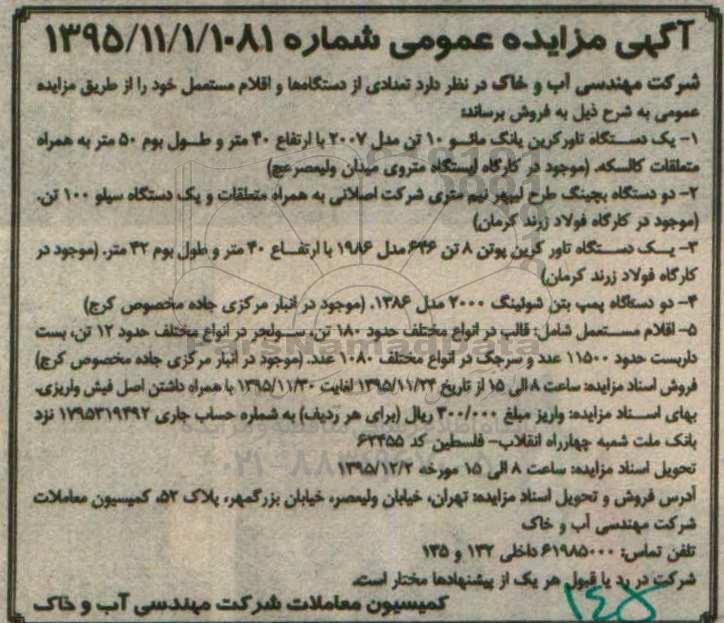 آگهی مزایده عمومی شماره ۱۳۹۵/۱۱/۱/۱۰۸۱
شرکت مهندسی آب و خاک در نظر دارد تعدادی از دستگاه‌ها و اقلام مستعمل خود را از طریق مزایده
عمومی به شرح ذیل به فروش برساند:
۱- یک دستگاه تاورکرین یانگ مائو ۱۰ تن مدل ۲۰۰۷ با ارتفاع ۴۰ متر و طول بوم ۵۰ متر به همراه
متعلقات کالسکه. (موجود در کارگاه ایستگاه متروی میدان ولیعصر(عج)
۲- دو دستگاه بچینگ طرح لیبهر نیم متری شرکت اصلانی به همراه متعلقات و یک دستگاه سیلو ۱۰۰ تن.
(موجود در کارگاه فولاد زرند کرمان)
۳- یک دستگاه تاور کرین پوتن ۸ تن ۶۴۶ مدل ۱۹۸۶ با ارتفاع ۴۰ متر و طول بوم ۴۲ متر. (موجود در
کارگاه فولاد زرند کرمان)
۴- دو دستگاه پمپ بتن شوئینگ ۲۰۰۰ مدل ۱۳۸۶. (موجود در انبار مرکزی جاده مخصوص کرج)
۵- اقلام مستعمل شامل: قالب در انواع مختلف حدود ۱۸۰ تن، سولجر در انواع مختلف حدود ۱۲ تن، بست
داربست حدود ۱۱۵۰۰ عدد و سرجک در انواع مختلف ۱۰۸۰ عدد. (موجود در انبار مرکزی جاده مخصوص کرج)
فروش اسناد مزایده: ساعت ۸ الی ۱۵ از تاریخ ۱۳۹۵/۱۱/۲۴ لغایت ۱۳۹۵/۱۱/۳۰ با همراه داشتن اصل فیش واریزی.
بهای اسناد مزایده: واریز مبلغ ۳۰۰/۰۰۰ ریال (برای هر ردیف) به شماره حساب جاری ۱۷۹۵۳۱۹۴۹۲ نزد
بانک ملت شعبه چهارراه انقلاب- فلسطین کد ۶۲۴۵۵
تحویل اسناد مزایده: ساعت ۸ الی ۱۵ مورخه ۱۳۹۵/۱۲/۲
آدرس فروش و تحویل اسناد مزایده: تهران، خیابان ولیعصر، خیابان بزرگمهر، پلاک ۵۲، کمیسیون معاملات
شرکت مهندسی آب و خاک
تلفن تماس: ۶۱۹۸۵۰۰۰ داخلی ۱۳۲ و ۱۳۵
شرکت در رد یا قبول هر یک از پیشنهادها مختار است.
کمیسیون معاملات شرکت مهندسی آب و خاک
۱۴۵
ParsNamadData